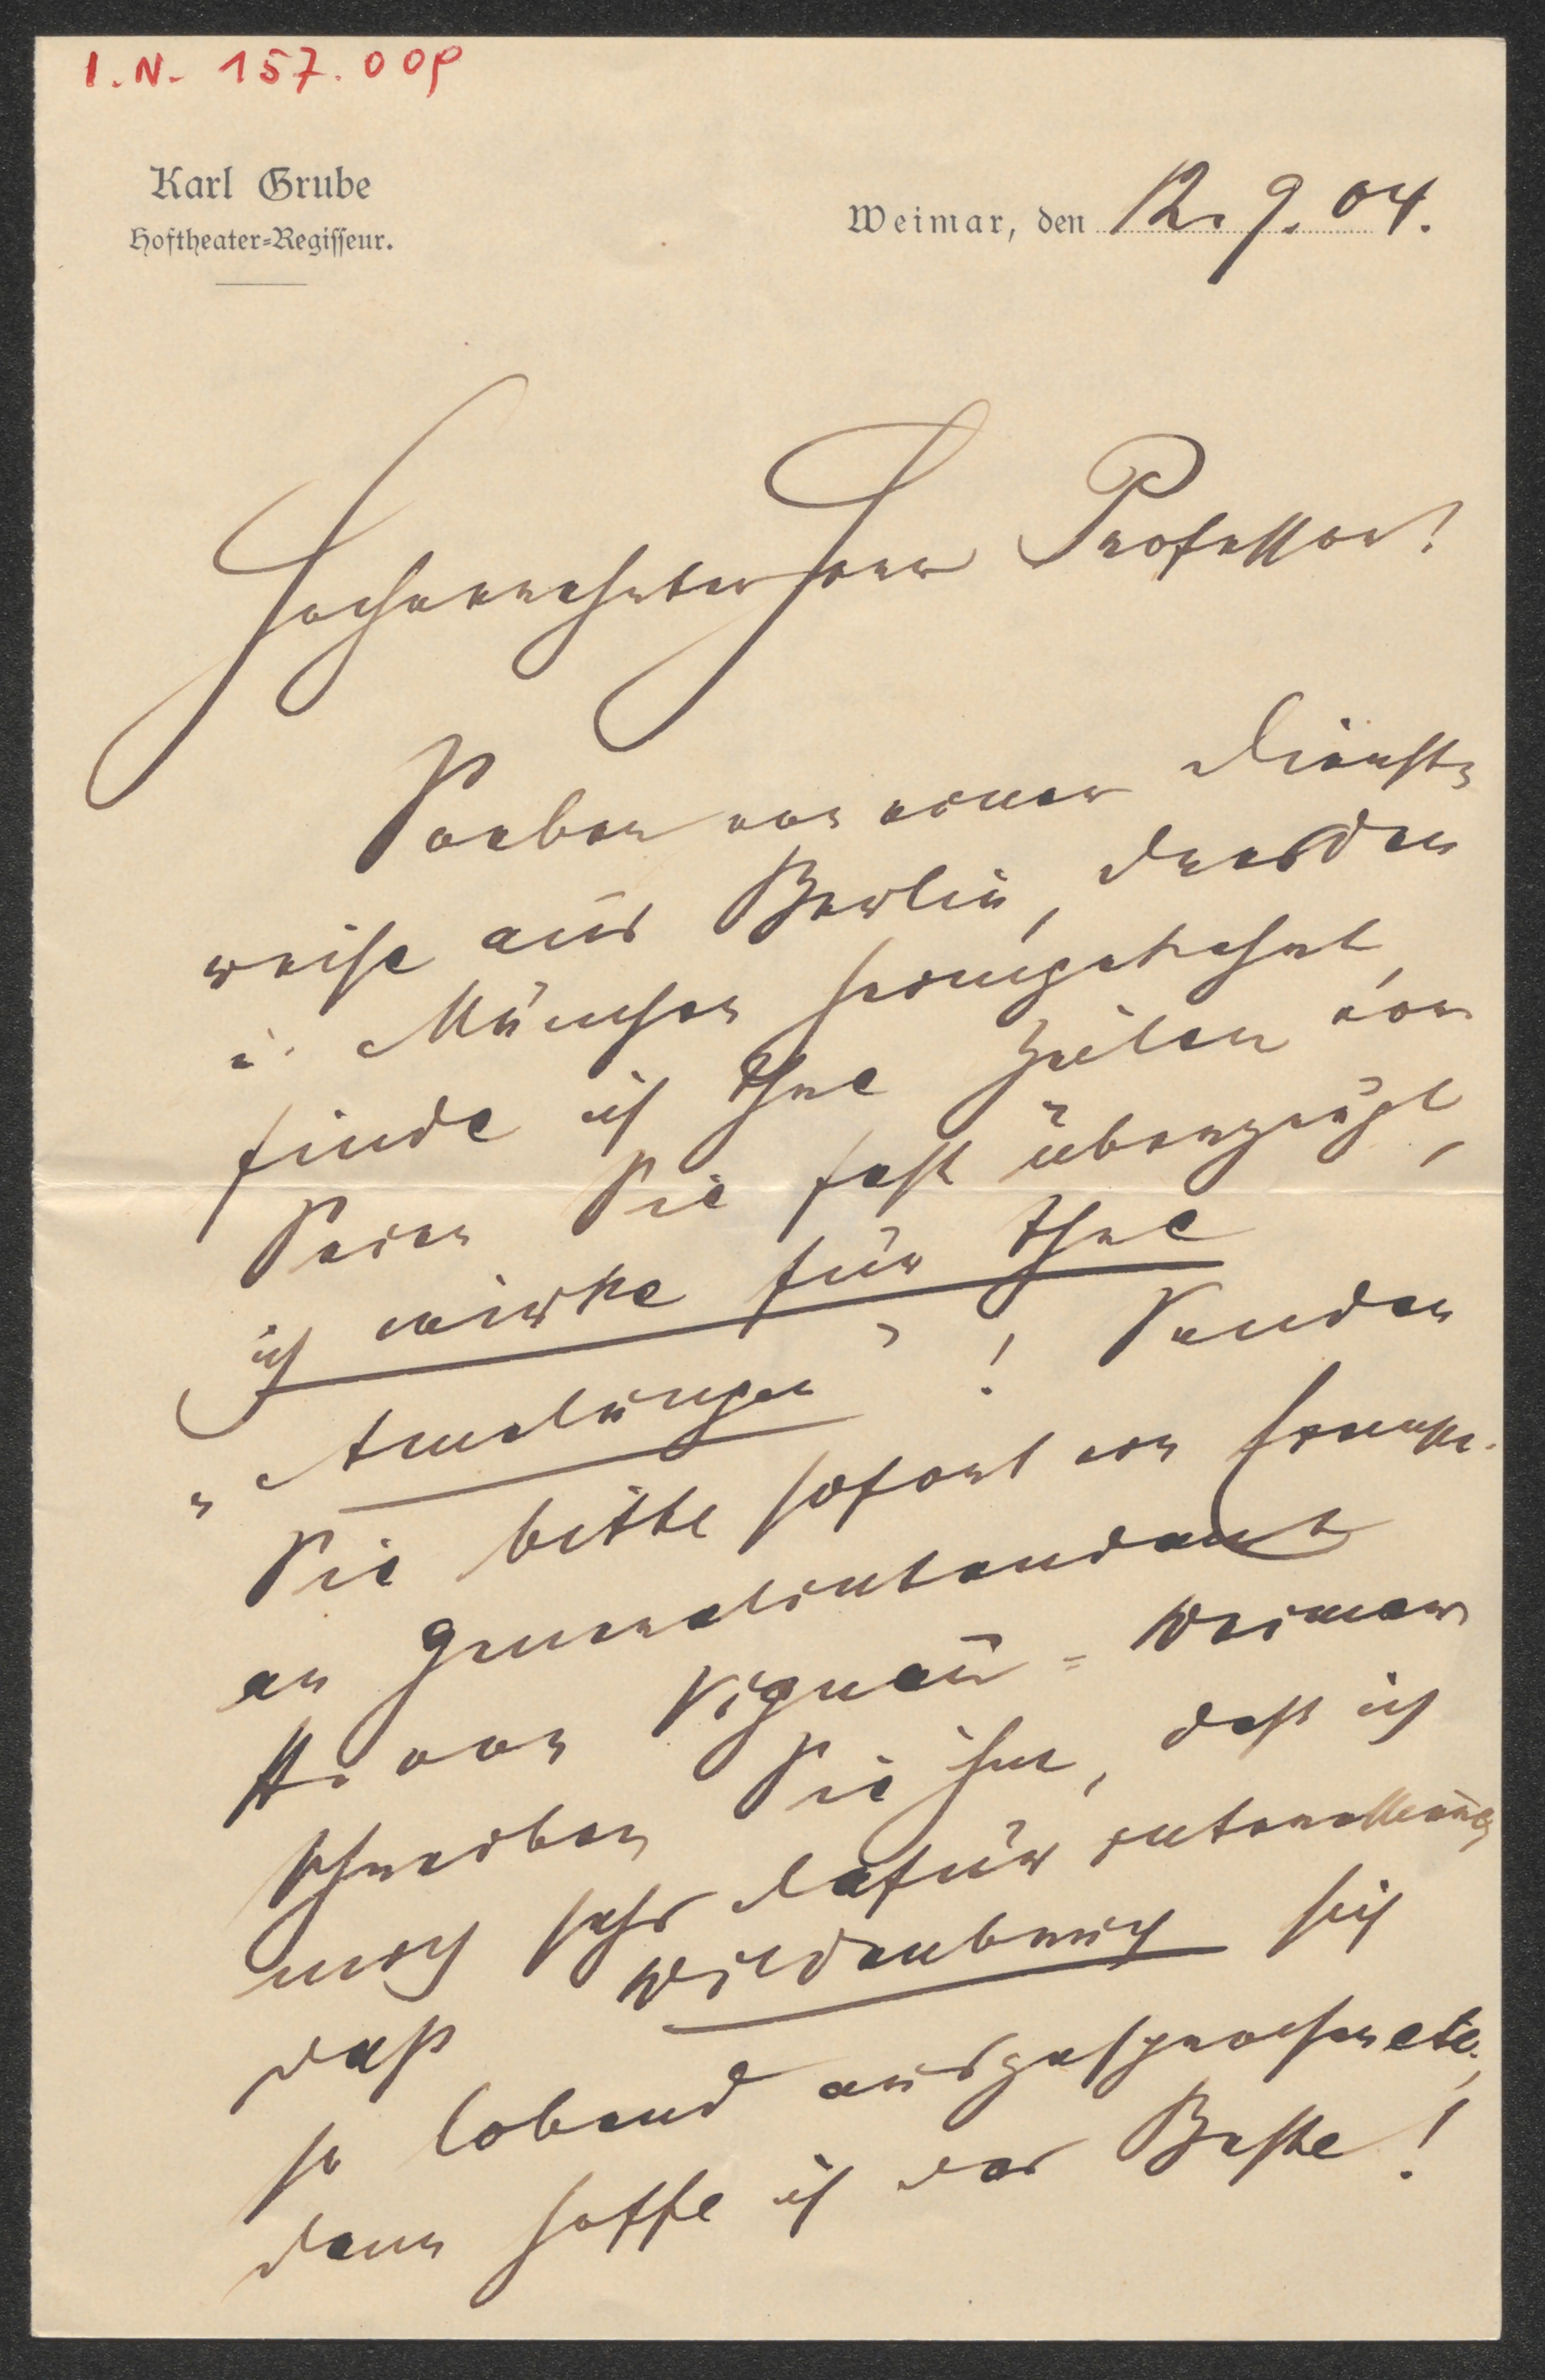 I.N. 157.009
Karl Grube
Hoftheater-Regisseur.
Weimar, den 12. 9. 04.
Hochverehrter Herr Professor!
Soeben von einer Dienst-
reise aus Berlin, Dresden
u. München heimgekehrt,
finde ich Ihre Zeilen vor.
Seien Sie fest überzeugt,
ich wirke für Ihre
„Amelungen"! Senden
Sie bitte sofort ein
an Generalintendant
H. von Vignau-Weimar
schreiben Sie ihm, daß ich
mich sehr dafür interessiere,
daß Wildenbruch sich
so lobend ausgesprochen etc.,
dann hoffe ich das Beste!